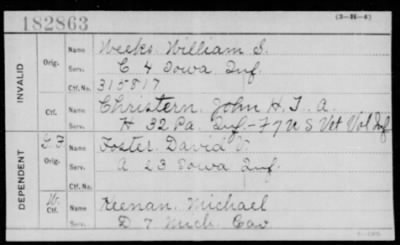 182863
(3-H-4)
INVALID
Orig.
Name Weeks William S.
Serv. C 4 Iowa Inf.
Ctf. No. 315817
Ctf.
Name Christern, John H. T. A.
Serv. H 32 Pa. Inf - F 7 U S Vet Vol Inf
DEPENDENT
G. F.
Orig.
Name Foster David V.
Serv. A 23 Iowa Inf.
Ctf. No.
W.
Ctf.
Name Keenan, Michael
Serv. D 7 Mich. Cav